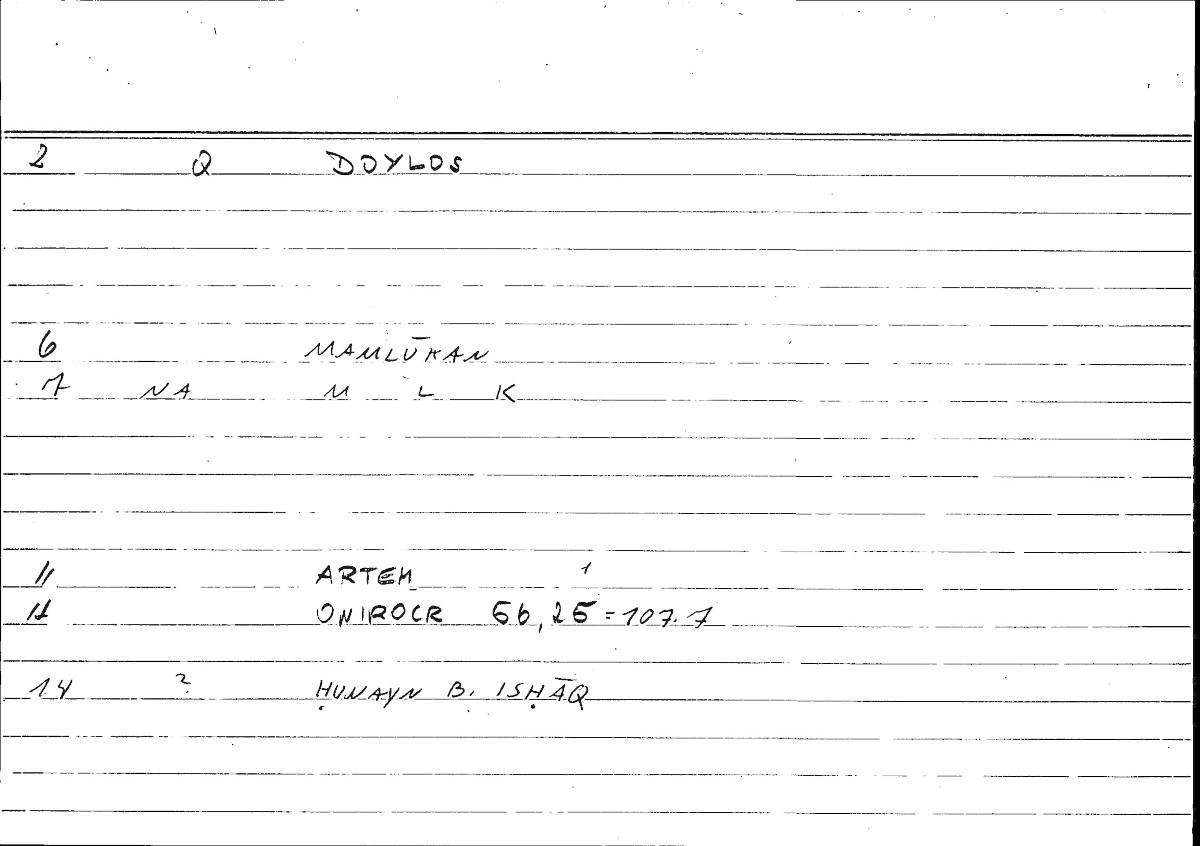 2 Q DOYLOS
6 MAMLŪKAN
7 NA M L K
11 ARTEM 1
12 ONIROCR 56,25=107.7
14 ? ḤUNAYN B. ISḤĀQ